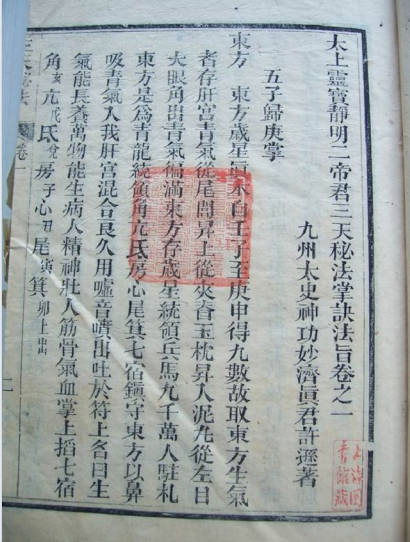 太上靈寶靜明二帝君三天秘法掌訣法旨卷之一
九州太史神功妙濟眞君許遜著
五子歸庚掌
東方　東方歲星眞木自壬子至庚申得九數故取東方生氣
者存肝宮青氣從尾閭昇上從夾脊玉枕昇入泥丸從左目
大眼角出青氣徧滿東方存歲星統領兵馬九千萬人駐札
東方是爲青龍統領角亢氐房心尾箕七宿鎭守東方以鼻
吸青氣入我肝宮混合良久用噓音噴出吐於符上各曰生
氣能長養萬物能生病人精神壯人筋骨氣血掌上掐七宿
角亥亢戌氐房子心丑尾寅箕卯上出
卷一
二